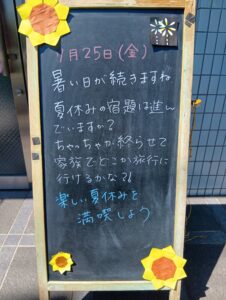 7月25日(金)
暑い日が続きますね
夏休みの宿題は進ん
でいますか?
ちゃっちゃか終らせて
家族でどこか旅行に
行けるかな?!
楽しい夏休みを
満喫しよう